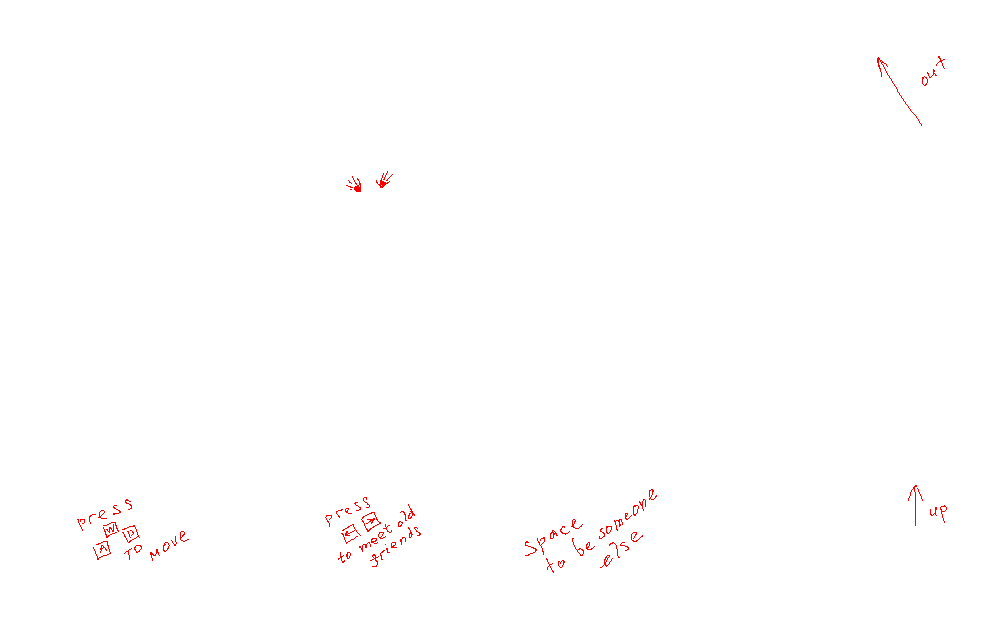 out
press
W
A D
TO MOVE
press
← →
to meet old
friends
Space
to be someone
else
up